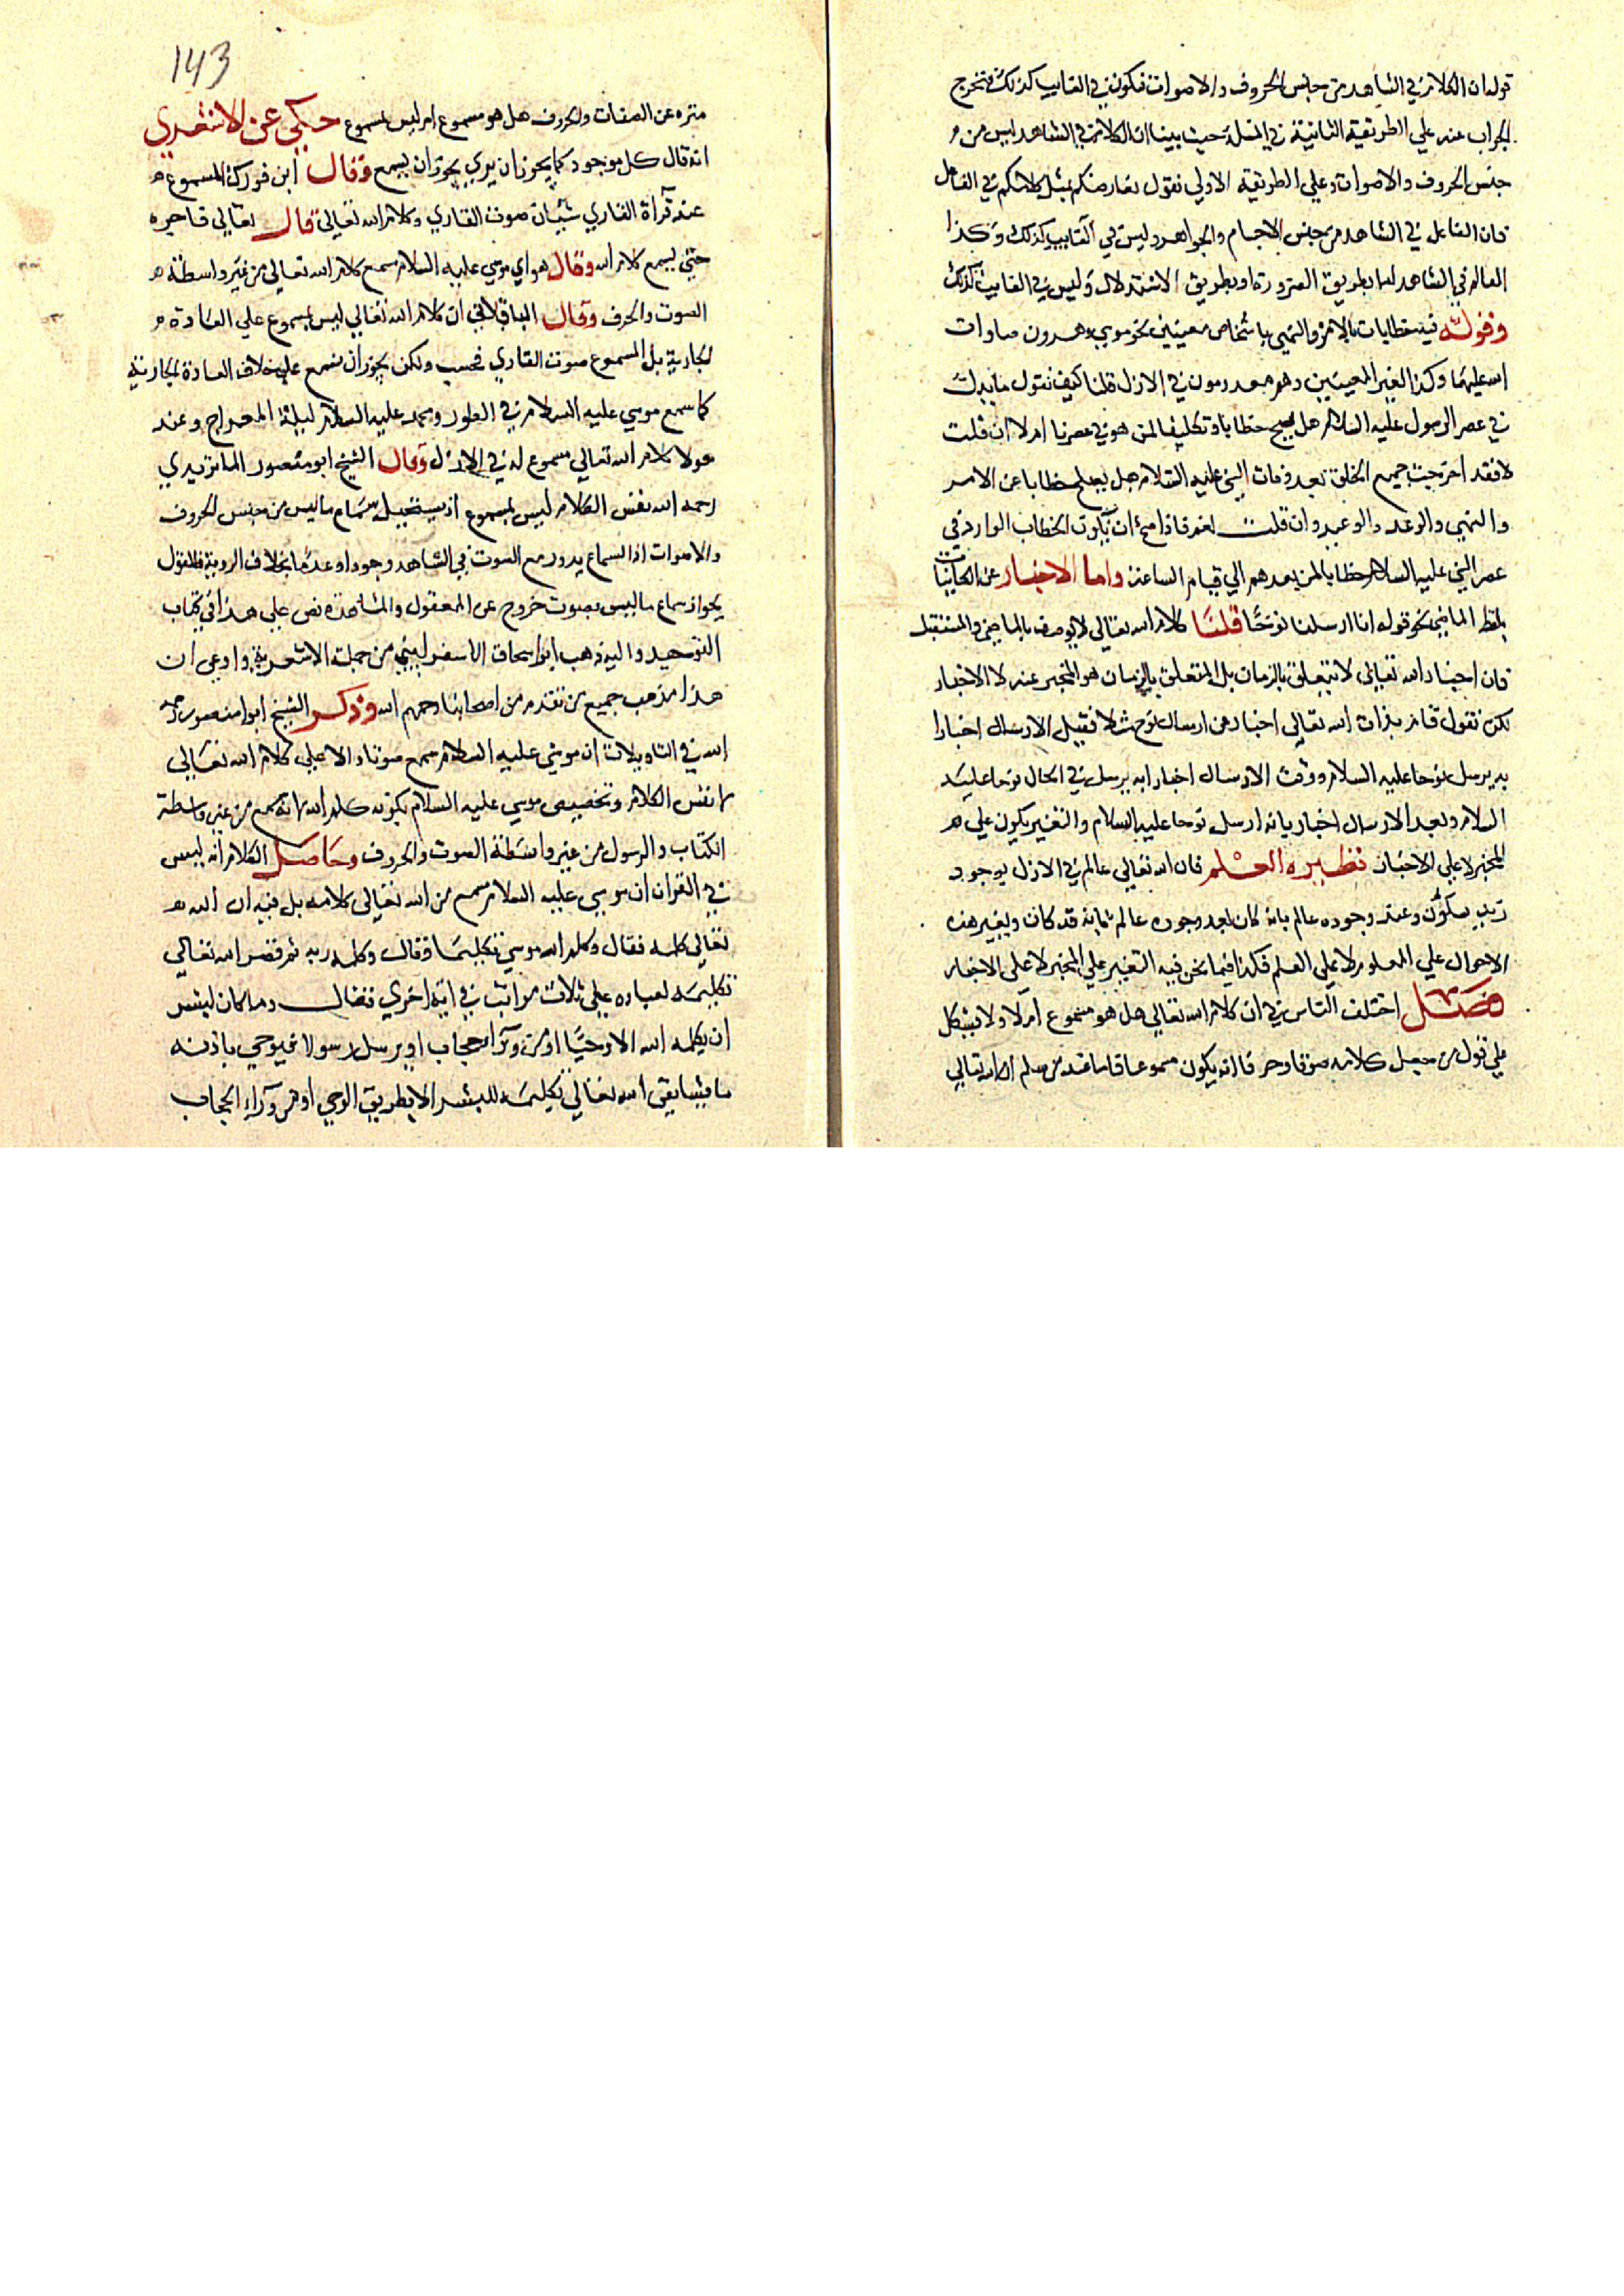 قوله ان الكلام في الشاهد من جنس الحروف والاصوات فكون في الغايب كذلك فتخرج
الجواب عنه علي الطريقة الثانية في المسلة حيث بينا ان الكلام في الشاهد ليس من
جنس الحروف والاصوات وعلي الطريقة الاولي نقول نعارضكم بمثل كلامكم في الفاعل
فان الفاعل في الشاهد من جنس الاجسام والجواهر وليس في الغايب كذلك وكذا
العالم في الشاهد اما بطريق الضرورة او بطريق الاستدلال وليس في الغايب كذلك
وقوله فيه خطابات بالامر والنهي باشخاص معينين نحو موسي وهرون صلوات
الله عليهما وكذا الغير المعينين وهم معدومون في الازل قلنا كيف نقول
في عصر الرسول عليه السلام هل يصح خطابا وتكليفا لمن هو في عصرنا ام لا ان قلت
لا فقد اخرجت جميع الخلق بعد وفات النبي عليه السلام خطابا عن الامر
والنهي والوعد والوعيد وان قلت نعم فاذا صح ان يكون الخطاب الوارد في
عصر النبي عليه السلام خطابا لمن بعدهم الي قيام الساعة واما الاخبار عن الكاينات
بلفظ الماضي نحو قوله انا ارسلنا نوحا قلنا كلام الله تعالي لا يوصف بالماضي والمستقبل
فان اخبار الله تعالي لا تتعلق بالزمان بل المتعلق بالزمان هو المخبر عنه لا الاخبار
لكن نقول قام بذات الله تعالي اخبار عن ارسال نوح مثلا فقبل الارسال اخبارا
به يرسل نوحا عليه السلام ووقت الارسال اخبار انه يرسل في الحال نوحا عليه
السلام وبعد الارسال اخبار بانه ارسل نوحا عليه السلام والتغير يكون علي
المخبر لا علي الاخبار نظيره العلم فان الله تعالي عالم في الازل بوجود
زيد سيكون وعند وجوده عالم بانه كان وبعد وجوده عالم بانه قد كان وبغير هذه
الاحوال علي المعلوم لا علي العلم فكذا فيما نحن فيه التغير علي المخبر لا علي الاخبار
فصل اختلف الناس في ان كلام الله تعالي هل هو مسموع ام لا ولا يشكل
علي قول من جعل كلامه صوتا وحرفا انه يكون مسموعا فاما عند من سلم ان الله تعالي
143
منزه عن الصفات والحروف هل هو مسموع ام ليس بمسموع حكي عن الاشعري
انه قال كل موجود كما يجوز ان يري يجوز ان يسمع وقال ابن فورك المسموع
عند قرآة القاري شيئان صوت القاري وكلام الله تعالي قال تعالي فاجره
حتي يسمع كلام الله وقال هو اي موسي عليه السلام سمع كلام الله تعالي من غير واسطة
الصوت والحرف وقال الباقلاني ان كلام الله تعالي ليس بمسموع علي العادة
الجارية بل المسموع صوت القاري فحسب ولكن يجوز ان نسمع علي خلاف العادة الجارية
كما سمع موسي عليه السلام في الطور ومحمد عليه السلام ليلة المعراج وعند
هولا كلام الله تعالي مسموع له في الازل وقال الشيخ ابو منصور الماتريدي
رحمه الله نفس الكلام ليس بمسموع اذ يستحيل سماع ما ليس من جنس الحروف
والاصوات اذ السماع يدور مع الصوت في الشاهد وجودا وعدما بخلاف الروية فالقول
بجواز سماع ما ليس بصوت خروج عن المعقول والمشاهدة نص علي هذا في كتاب
التوحيد واليه ذهب ابو اسحاق الاسفرايني من جملة الاشعرية وادعي ان
هذا مذهب جميع من تقدم من اصحابنا رحمهم الله وذكر الشيخ ابو منصور رحمه
الله في التاويلات ان موسي عليه السلام سمع صوتا دالا علي كلام الله تعالي
لا نفس الكلام وتخصيص موسي عليه السلام بكونه كلم الله لانه سمع من غير واسطة
الكتاب والرسول من غير واسطة الصوت والحروف وحاصل الكلام انه ليس
في القران ان موسي عليه السلام سمع من الله تعالي كلامه بل فيه ان الله
تعالي كلمه فقال وكلم الله موسي تكليما وقال وكلمه ربه ثم قص الله تعالي
تكليمه لعباده علي ثلاث مراتب في اية اخري فقال وما كان لبشر
ان يكلمه الله الا وحيا او من ورآء حجاب او يرسل رسولا فيوحي باذنه
ما يشا بقي الله تعالي تكليمه للبشر الا بطريق الوحي او من ورآء الحجاب